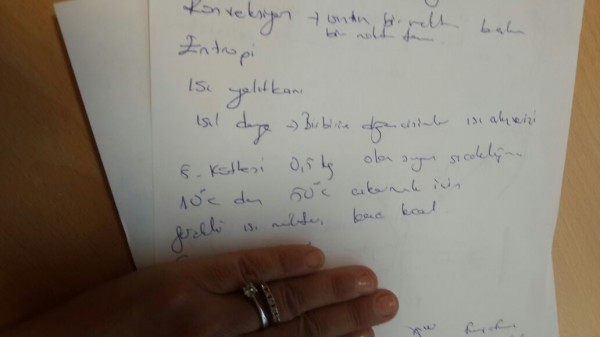 Konveksiyon → ısının bir noktadan başka
bir noktadan
Entropi
Isı yalıtkanı
Isıl denge → Birbirine değen cisimler ısı alışverişi
5- Kütlesi 0,5 kg olan suyun sıcaklığını
10°C dan 50°C çıkarmak için
gerekli ısı miktarı kaç kcal